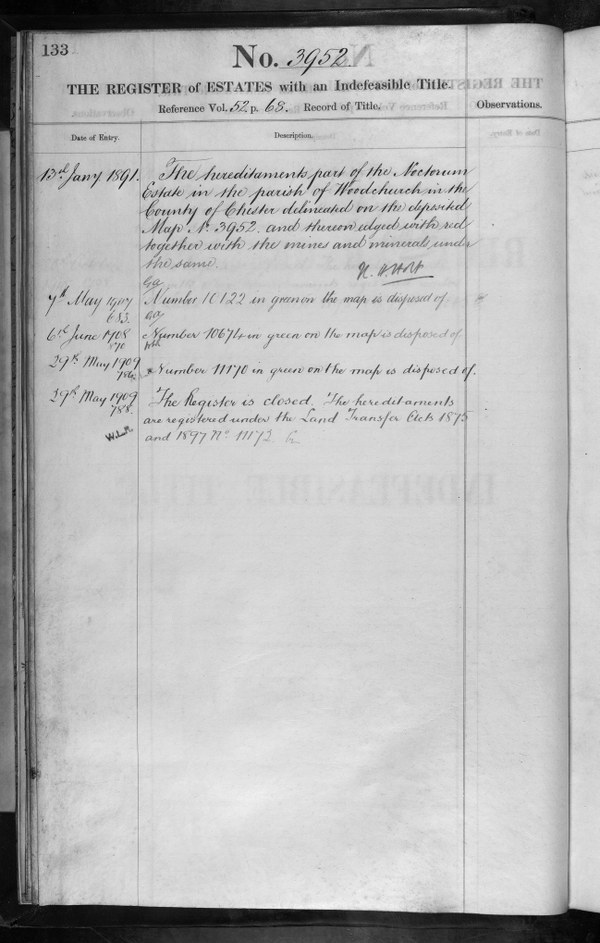 133
No. 3952
THE REGISTER of ESTATES with an Indefeasible Title.
Reference Vol. 52. p. 65. Record of Title.
Observations.
Date of Entry.
Description.
13th Jany 1891.
The hereditaments part of the Noctorum
Estate in the parish of Woodchurch in the
County of Chester delineated on the deposited
Map No. 3952. and thereon edged with red
together with the mines and minerals under
the same.
7th May 1907
Number 10122 in green on the map is disposed of.
6th June 1908
Number 10674 in green on the map is disposed of.
29th May 1909
Number 11170 in green on the map is disposed of.
29th May 1909
788.
The Register is closed. The hereditaments
are registered under the Land Transfer Acts 1875
and 1897 No. 11172